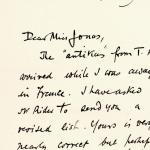 Dear Miss Jonas,
The "antiKens" from T. A
arrived while I was away
in France. I have asked
or Rider to send you a
revised list. Yours is very
nearly correct but perhaps